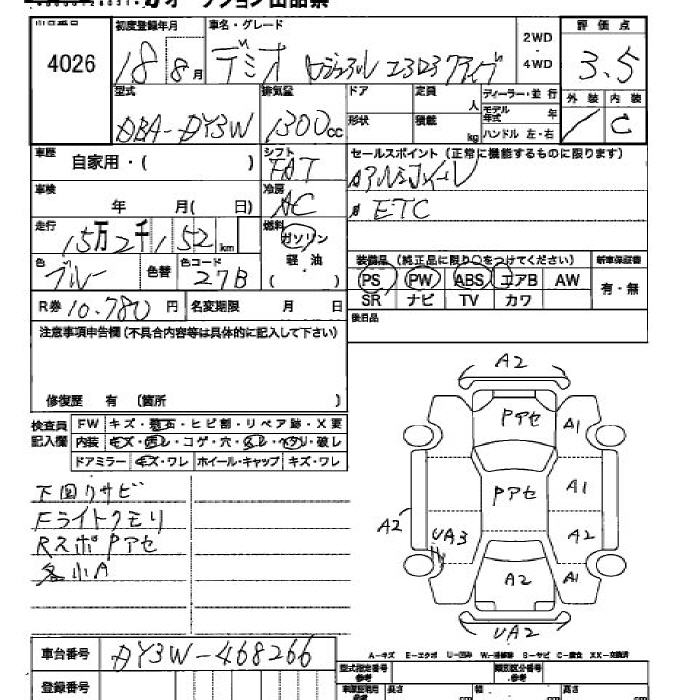 オークション出品票
出品番号 4026
初度登録年月 18 8月
車名・グレード デミオ カジュアル エアロアクティブ
2WD・4WD
評価点 3.5
外装 / 内装 C
型式 DBA-DY3W
排気量 1300cc
ドア 形状
定員 人 積載 kg
ディーラー・並行
モデル年式 年
ハンドル 左・右
車歴 自家用・( )
シフト FAT
車検 年 月( 日)
冷房 AC
走行 15万2千152km
燃料 ガソリン 軽油 ( )
色 ブルー 色替 色コード 27B
R券 10.780円 名変期限 月 日
セールスポイント (正常に機能するものに限ります)
アルミホイール
ETC
装備品 (純正品に限り○をつけてください)
新車保証書 有・無
PS PW ABS エアB AW
SR ナビ TV カワ
後日品
注意事項申告欄 (不具合内容等は具体的に記入して下さい)
修復歴 有 (箇所 )
検査員記入欄
FW キズ・飛石・ヒビ割・リペア跡・X要
内装 キズ・汚レ・コゲ・穴・スレ・ヘタリ・破レ
ドアミラー キズ・ワレ ホイール・キャップ キズ・ワレ
下回りサビ
Fライトクモリ
RスポPアセ
各小A
A2
Pアセ A1
Pアセ A1
A2 UA3 A2
A2 A1
UA2
A-キズ E-エクボ U-凹み W-補修跡 S-サビ C-腐食 XX-交換済
車台番号 DY3W-468266
登録番号
型式指定番号 参考
類別区分番号 参考
長さ cm 幅 cm 高さ cm